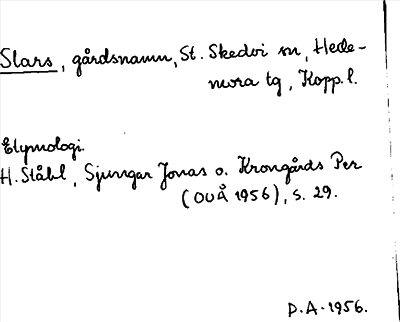 Slars, gårdsnamn, St. Skedvi sn, Hede-
mora tg, Kopp. l.
Etymologi.
H. Ståhl, Sjungar Jonas o. Krongårds Per
(OUÅ 1956), s. 29.
D.A. 1956.